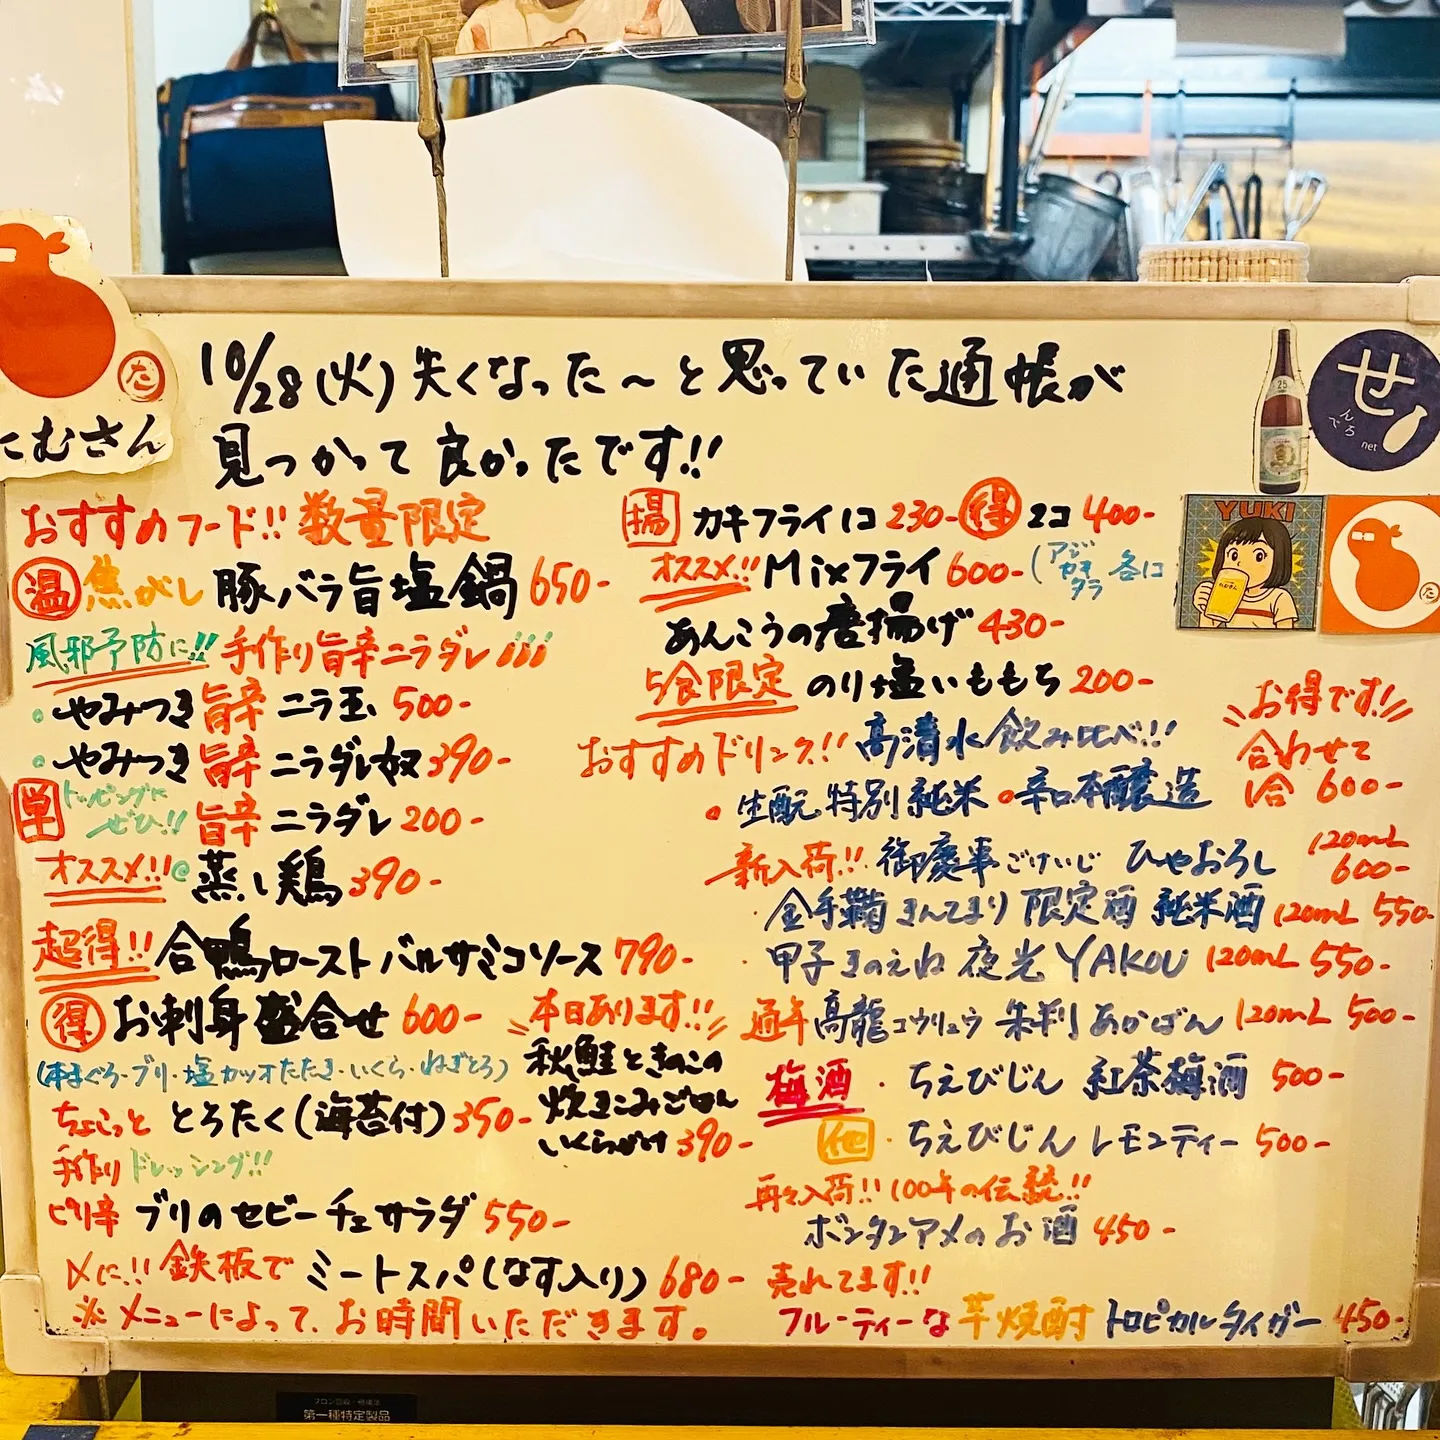 10/28(火)失くなった〜と思っていた通帳が
見つかって良かったです!!
たむさん
た
せ
んでろ
net
25
YUKI
た
おすすめフード!! 数量限定
温 焦がし 豚バラ旨塩鍋 650-
風邪予防に!! 手作り旨辛ニラダレ!!!
・やみつき 旨辛 ニラ玉 500-
・やみつき 旨辛 ニラダレ奴 390-
単 トッピングに ぜひ!! 旨辛 ニラダレ 200-
オススメ!!@ 蒸し鶏 390-
超得!! 合鴨ローストバルサミコソース 790-
得 お刺身盛合せ 600-
(本まぐろ・ブリ・塩カツオたたき・いくら・ねぎとろ)
ちょこっと とろたく(海苔付) 350-
手作りドレッシング!!
ピリ辛 ブリのセビーチェサラダ 550-
〆に!! 鉄板で ミートスパ(なす入り) 680-
※メニューによって、お時間いただきます。
本日あります!!
秋鮭ときのこの
炊きこみごはん
いくらがけ 390-
揚 カキフライ1コ 230- 得 2コ 400-
オススメ!! Mixフライ 600- (アジ カキ タラ 各1コ
あんこうの唐揚げ 430-
5食限定 のり塩いももち 200-
おすすめドリンク!! 高清水飲み比べ!!
・生酛特別純米 ・辛口本醸造
お得です!!
合わせて
1合 600-
新入荷!! 御慶事ごけいじ ひやおろし 120mL 600-
・金手鞠きんてまり 限定酒 純米酒 120mL 550-
・甲子きのえね 夜光 YAKOU 120mL 550-
通年 高龍コウリュウ 朱判 あかばん 120mL 500-
梅酒 ・ちえびじん 紅茶梅酒 500-
他 ・ちえびじん レモンティー 500-
再々入荷!! 100年の伝統!!
ボンタンアメのお酒 450-
売れてます!!
フルーティーな芋焼酎 トロピカルタイガー 450-
フロン回収・破壊法
第一種特定製品